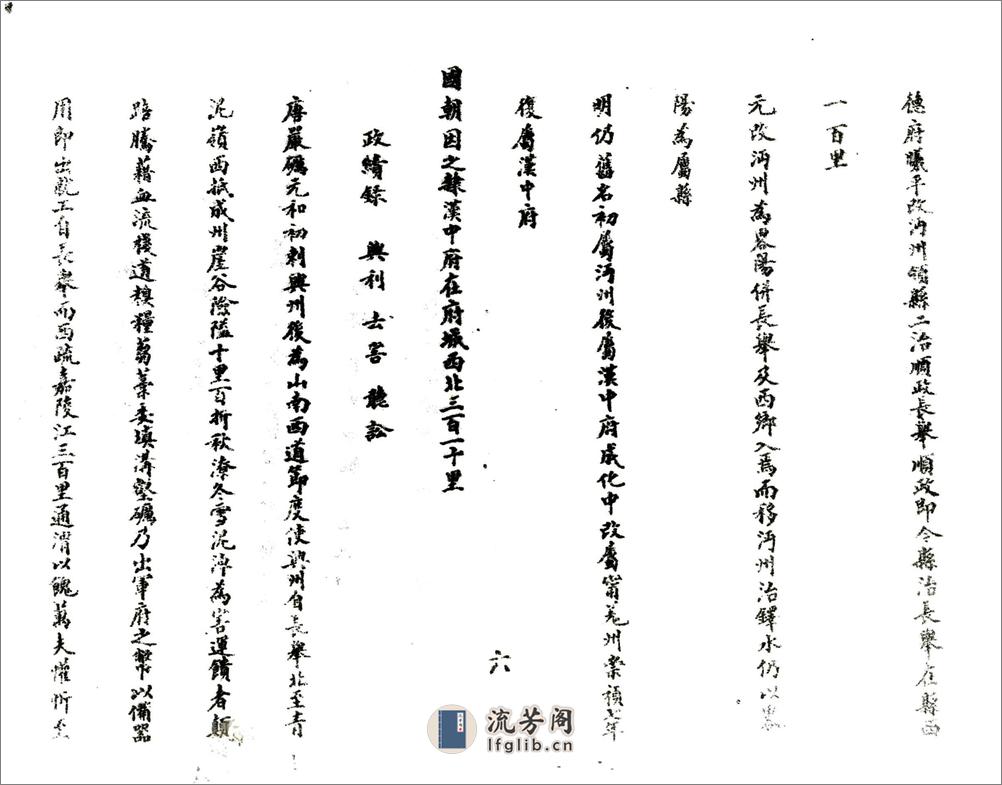 德府曦平改沔州領縣二治順政長舉順政即今縣治長舉在縣西
一百里
元改沔州為畧陽併長舉及西鄉入焉而移沔州治鐸水仍以畧
陽為屬縣
明仍舊名初屬沔州後屬漢中府成化中改屬甯羌州崇禎七年
復屬漢中府
國朝因之隸漢中府在府城西北三百一十里
政績錄 興利 去害 聽訟
唐嚴礪元和初刺興州後為山南西道節度使興州自長舉北至青
泥嶺西抵成州崖谷險隘十里百折秋潦冬雪泥淖為害運饋者顛
踣騰藉血流棧道糗糧芻藁委填溝壑礪乃出軍府之幣以備器
用即出就工自長舉而西疏嘉陵江三百里通渭以餽萬夫懽忻至
六
流芳阁
lfglib.cn